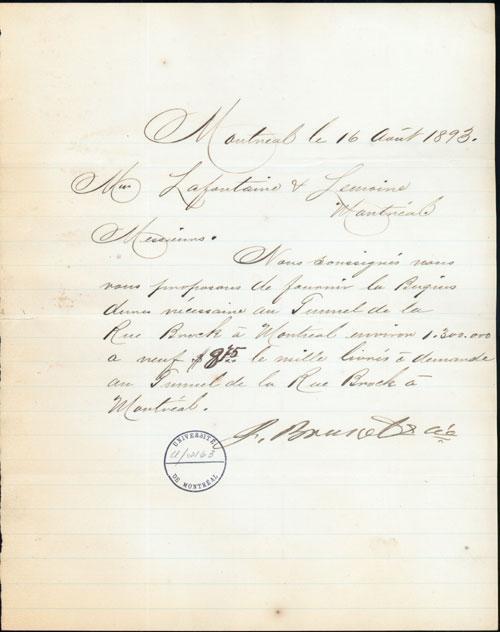 Montreal le 16 Août 1893.
Mrs Lafontaine & Lemoine
Montréal
Messieurs.
Nous soussignés nous
vous proposons de fournir la
nécessaire au Tunnel de la
Rue Brock à Montreal environ 1.300.000
a neuf $ le mille livrés à demande
au Tunnel de la Rue Brock à
Montréal.
& cie
UNIVERSITÉ
DE MONTRÉAL